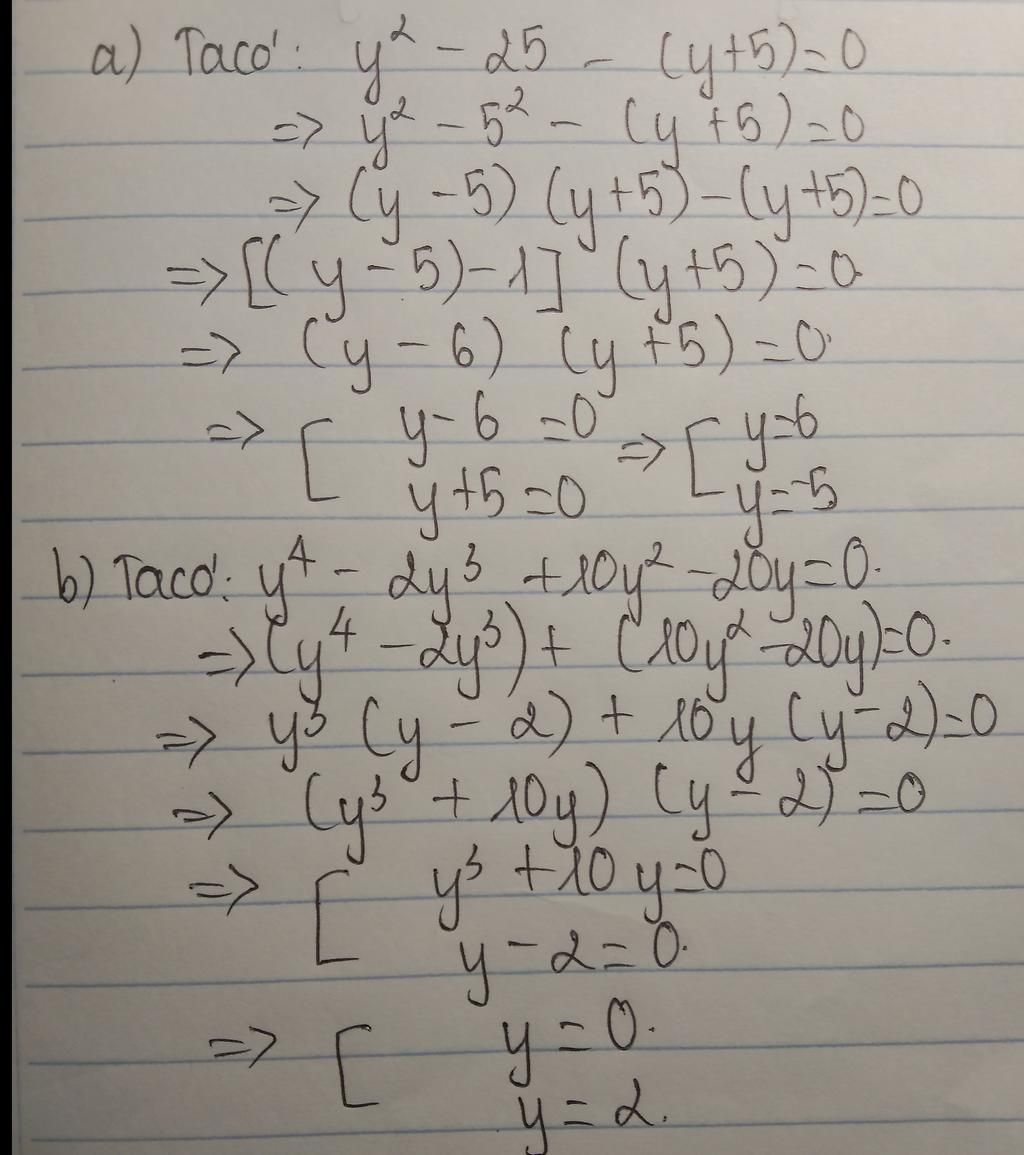 a) Ta có: y² - 25 - (y+5)=0
=> y² - 5² - (y+5)=0
=> (y-5) (y+5)-(y+5)=0
=> [(y-5)-1] (y+5)=0.
=> (y-6) (y+5)=0.
=> [ y-6=0 => [ y=6
y+5=0 y=-5
b) Ta có: y⁴ - 2y³ +10y² -20y=0.
=> (y⁴ -2y³)+ (10y² -20y)=0.
=> y³ (y-2) + 10y (y-2)=0
=> (y³ + 10y) (y-2)=0
=> [ y³ +10y=0
y-2=0.
=> [ y=0.
y=2.